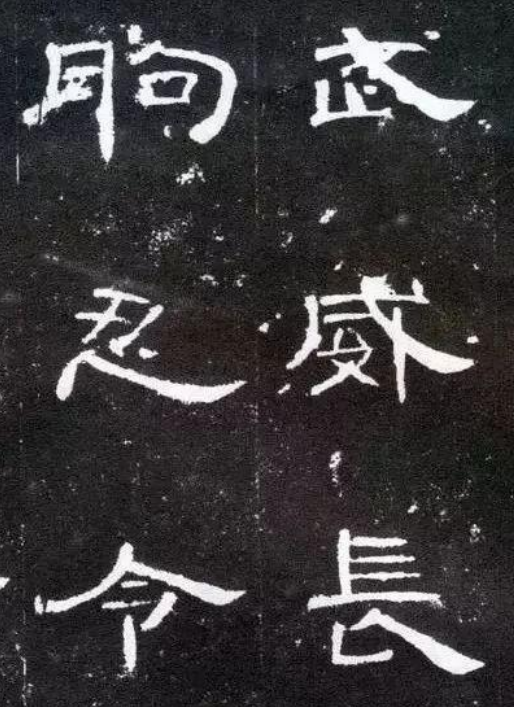 武威長
朐忍令